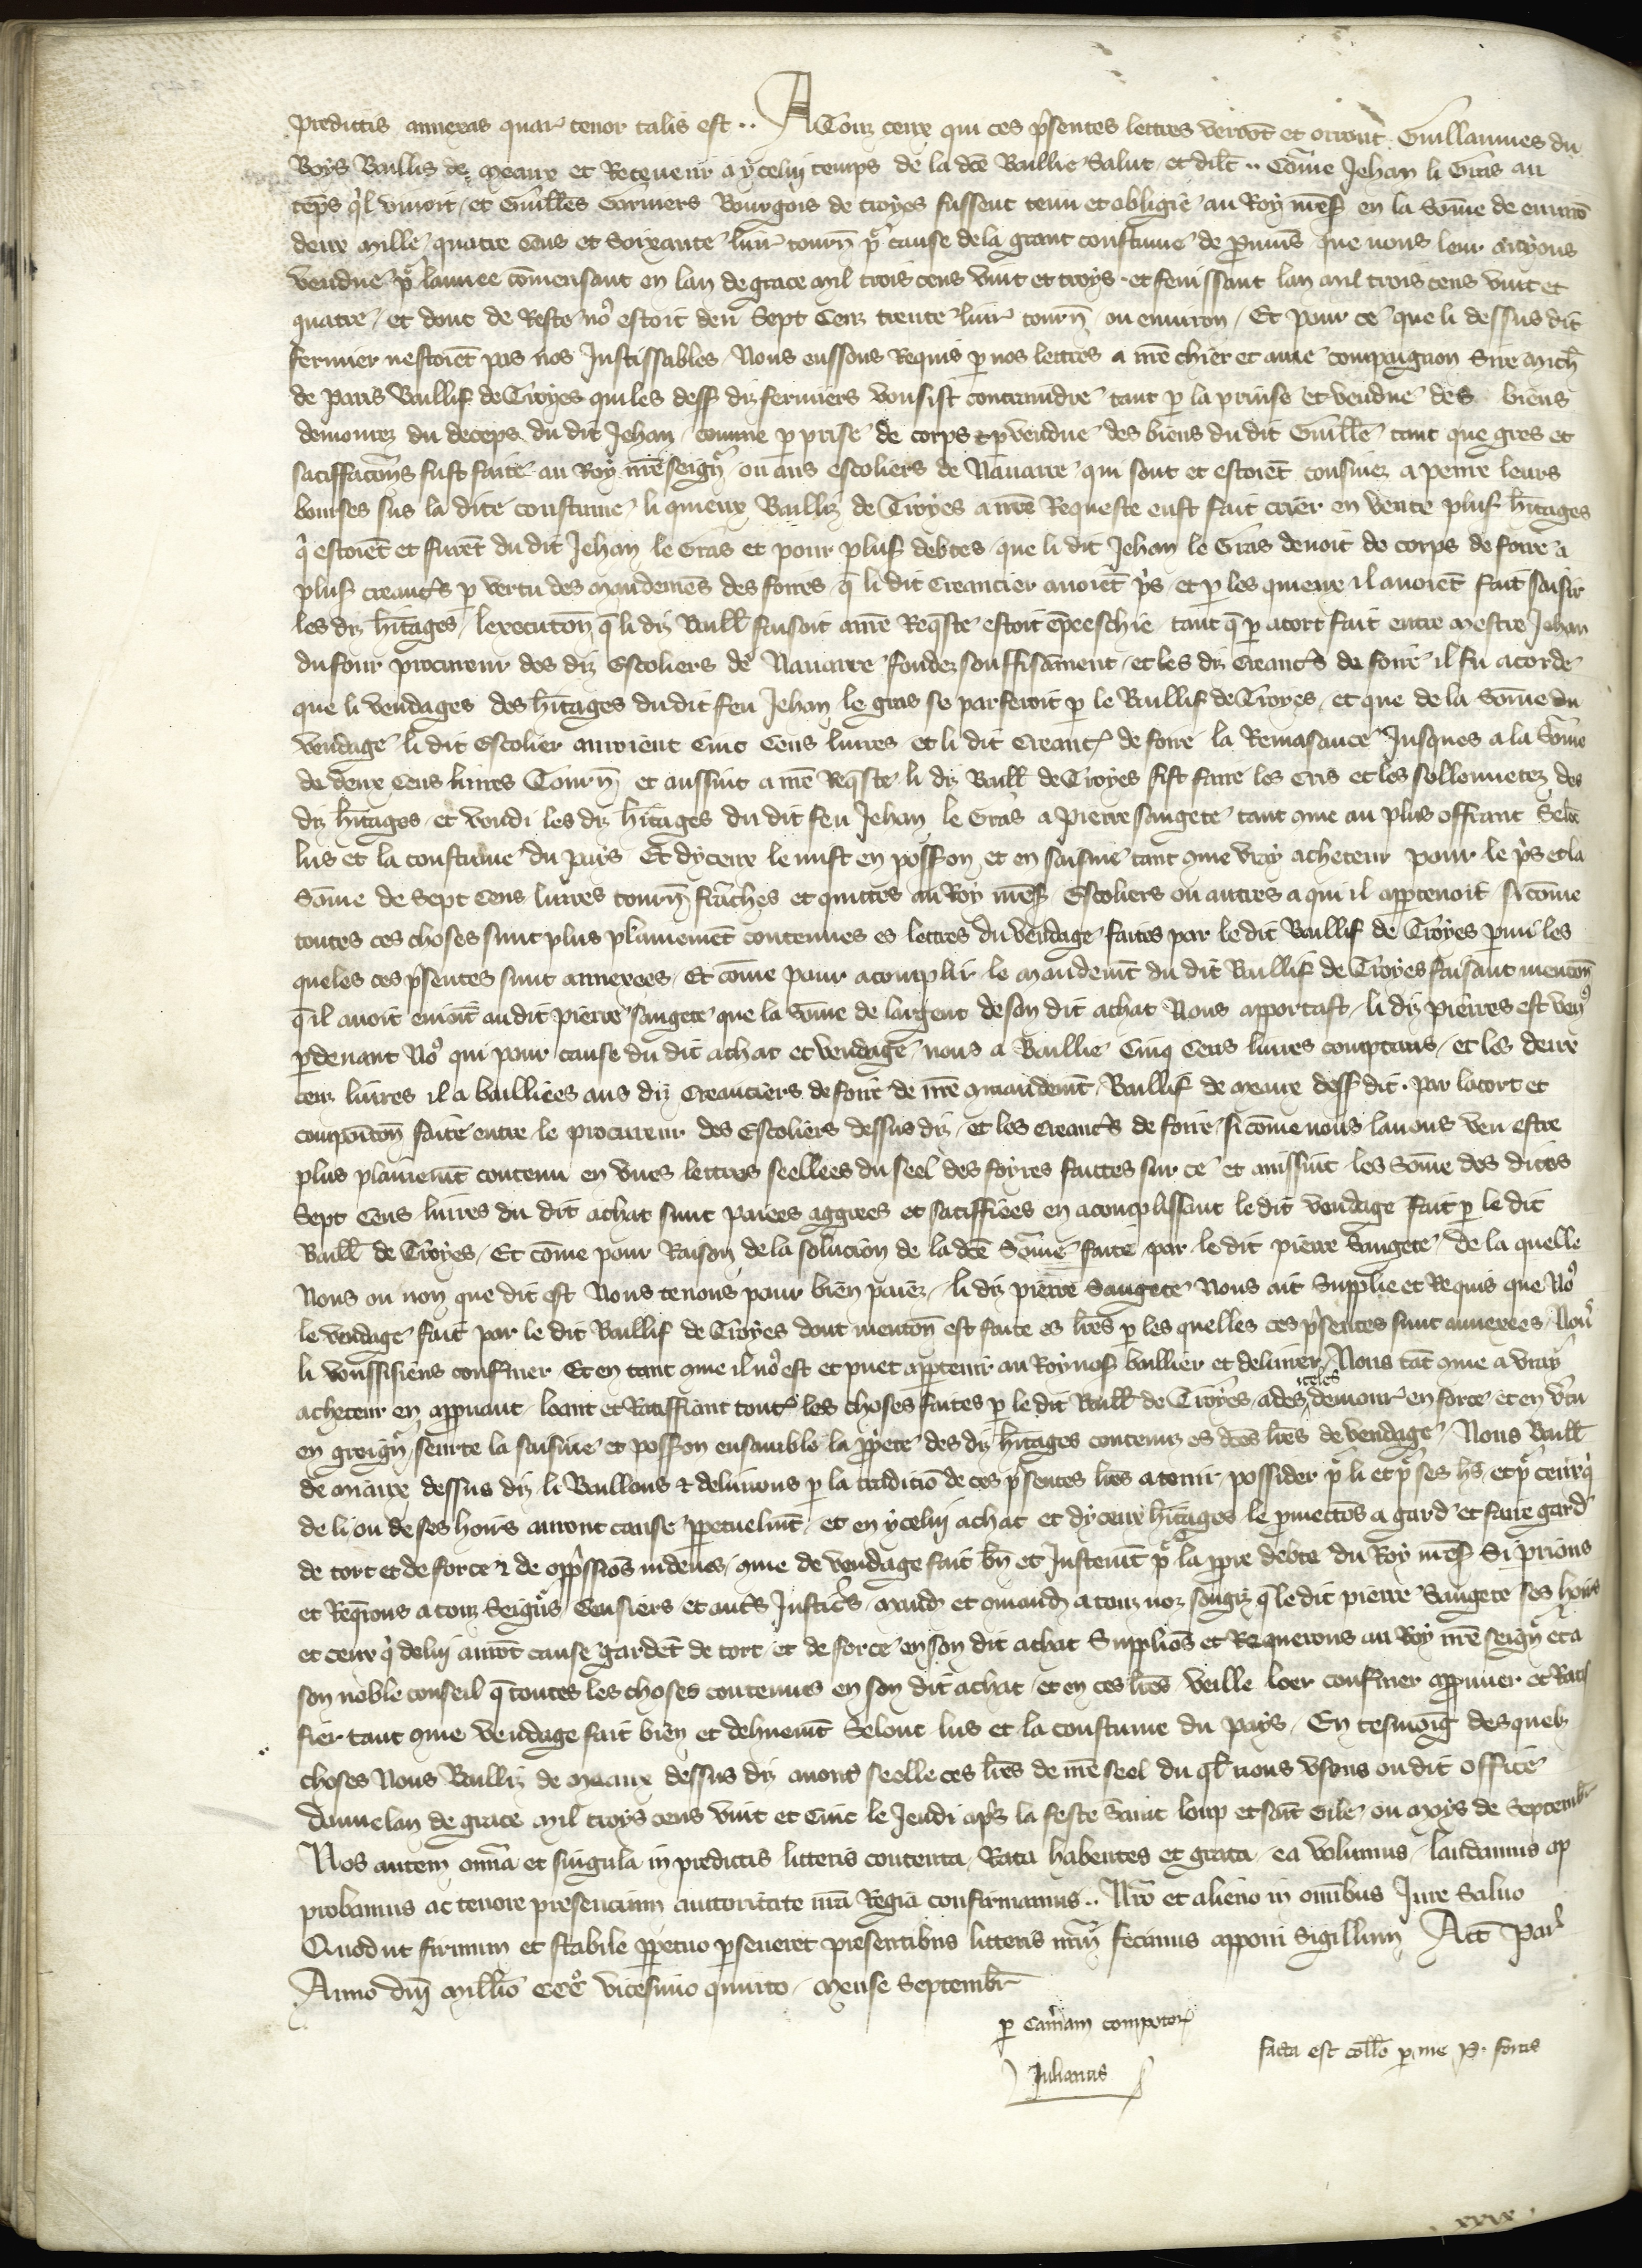 predictis annexas quar tenor talis est .. A Touz ceux qui ces p̃sentes lettres verrõt et orront Guillaumes du
Boys Baillis de Meaux et Receueur a ycelui temps de la dc̃e Baillie Salut et dil̃t .. Cõme Jehan li Gras au
tẽps q̾l viuoit / et Guill̃es Garniers Bourgois de troyes fussent tenu et obligie au Roy nr̃es̃ en la Sõme de enuirõ
deux Mille quatre Cens et Soixante liur̃ tourñ p̾ cause de la grant coustume de que nous leur auyons
vendue p̾ lannee cõmensant en lan de grace Mil trois cens vint et troys et fenissant lan mil trois cens vint et
quatre / et dont de Reste no9 estoit deu Sept Cenz trente liur̃ tourñ ou enuiron / Et pour ce que li dessus dit
fermier nestoiẽt pas nos Justissables / Nous eussons Requis p nos lettres a nr̃e chier et ame compaignon Sire Mich̃
de Paris Baillif de Troyes qui les dess̃ diz fermiers vousist contraindre tant p la prinse et vendue des biens
demourez du deceps du dit Jehan comme p prise de corps et p vendue des biens du dit Guill̃e tant que gres et
satiffacc̃ons fust faite au Roy nr̃e seign̾ ou aus escoliers de Nauarre qui sont et estoiẽt coustumez a penre leurs
bourses sus la dite coustume li quieux Bailliz de Troyes a nr̃e Requeste eust fait crier en vente plus̃ h̃itages
q̾ estoiẽt et furẽt du dit Jehan le Gras et pour plus̃ debtes que li dit Jehan le Gras deuoit de corps de foire a
plus̃ creanc̃s p vertu des Mandemẽs des foires q̃ li dit Creancier auoiẽt p̾s et p les quieux il auoiẽt fait saisir
les diz h̃itages / lexecutoñ q̃ li diz Baill̃ faisoit a nr̃e Req̃ste estoit ẽpeeschie tant q̃ p acort fait entre Mestre Jehan
du four procureur des diz Escoliers de Nauarre fondez souffisãment et les diz Creanc̃s de foire il fu acorde
que li vendages des h̃itages du dit feu Jehan le gras se parferoit p le Baillif de Troyes / et que de la Sõme du
vendage li dit Escolier auroient Cinc Cens liures et li dit Creanc̃ de foire la Remasance Jusques a la Sõme
de deux Cens liures Tourñ et aussint a nr̃e Req̃ste li diz Baill̃ de Troyes fist faire les Cris et les sollennetez des
diz h̃itages et vendi les diz h̃itages du dit feu Jehan le Gras a Pierre Saugete tant q̃me au plus offrant Selõc
lus et la coustume du pays Et dyceux le mist en poss̃on et en saisine tant q̃me vray acheteur pour le p̾s et la
Sõme de Sept Cens liures tourñ frãches et quittes au Roy nr̃es̃ Escoliers ou autres a qui il appartenoit si cõme
toutes ces choses sunt plus plainemẽt contenues es lettres du vendage faites par le dit Baillif de Troyes pmi les
queles ces p̃sentes sunt annexees / Et cõme pour acomplir le Mandemt̃ du dit Baillif de Troyes faisant menc̃on
q̃ il auoit enioĩt au dit Pierre Saugete que la Sõme de largent de son dit achat Nous apportast / li diz Pierres est ven9
p deuant No9 qui pour cause du dit achat et vendage nous a Baillie Cinq Cens liures comptans / et les deux
cenz liures il a bailliees aus diz Creanciers de foire de nr̃e Mandemt̃ Baillif de Meaux dess̃ dit par lacort et
compoic̃on faite entre le procureur des Escoliers dessus diz et les Creanc̃s de foire si cõme nous lauons veu estre
plus plainemt̃ contenu en vnes lettres seellees du seel des foyres faittes sur ce et aussint les Sõme des dites
Sept Cens liures du dit achat sunt paiees aggrees et satiffiees en acomplissant le dit vendage fait p le dit
Baill̃ de Troyes / Et cõme pour Raison de la solucion de la dc̃e Sõme faite par le dit Pierre Saugete de la quelle
Nous ou non que dit est Nous tenons pour bien paiez / li diz Pierre Saugete Nous ait Supplie et Requis que No9
le vendage fait par le dit Baillif de Troyes dont menc̃oñ est faite es lr̃es p les quelles ces p̃sentes sunt annexees
li voussisiens confr̃mer Et en tant q̃me il no9 est et puet apptenir au Roy nos̃ baillier et deliurer / Nous tãt q̃me a vray
acheteur en appuuant loant et Ratiffiant tout̃ les choses faites p le dit Baill̃ de Troyes / a des iteles demour̃ en force et en v̾tu
en greign̾ seurte la saisine et poss̃on ensamble la pp̾ete des diz h̃itages contenuz es dc̃es lr̃es de vendage / Nous Baill̃
de Miaux dessus diz li Baillons & deliurons p la tradiciõ de ces p̃sentes lr̃es a tenir possider p̾ li et p̾ ses h̾s et p̾ ceux q̾
de li ou de ses hoirs auront cause ppetuelmt̃ / et en ycelui achat et dyceux h̃itages le pmettõs a gard̾ et faire gard̾
de tort et de force & de opp̃ssiõs indeues q̃me de vendage fait bñ et Justemt̃ p̾ la pp̾re debte du Roy nr̃es̃ Si prions
et Req̃rons a touz Seign̾s Censiers et aut̃s Justic̃s mand̾ et q̃mand̾ a touz noz sougiz q̃ le dit Pierre Saugete ses hoirs
et ceux q̾ de lui aurõt cause gardẽt de tort et de force en son dit achat Suppliõs et Requerons au Roy nr̃e seign̾ et a
son noble conseil q̃ toutes les choses contenues en son dit achat et en ces lr̃es veille loer confr̃mer appuuer et Rati
fier tant q̃me vendage fait bien et deluemt̃ Selonc lus et la coustume du pays / En tesmoĩg des quelz
choses Nous Bailliz de Miaux dessus diz auons seelle ces lr̃es de nr̃e seel du q̃l nous vsons ou dit office
Donne lan de grace Mil troys cens vint et Cinc le Jeudi ap̾s la feste Saint loup et saĩt Gile ou Moys de Septembr̃
Nos autem om̃ia et singula in predictis litteris contenta Rata habentes et grata ea volumus laudamus ap
probamus ac tenore presencium auctoritate nr̃a Regia confirmamus .. Nr̃o et alieno in om̃ibus Jure Saluo
Quod ut firmum et stabile ppetuo pseueret presentibus litteris nr̃um fecimus apponi Sigillum Act̃ Par̃
Anno dñi Mill̃o CCC9 vicesimo quinto Mense Septembr̃
p Cam̃am compotor̃
Julianus
facta est coll̃o p me P. fortis
xxix